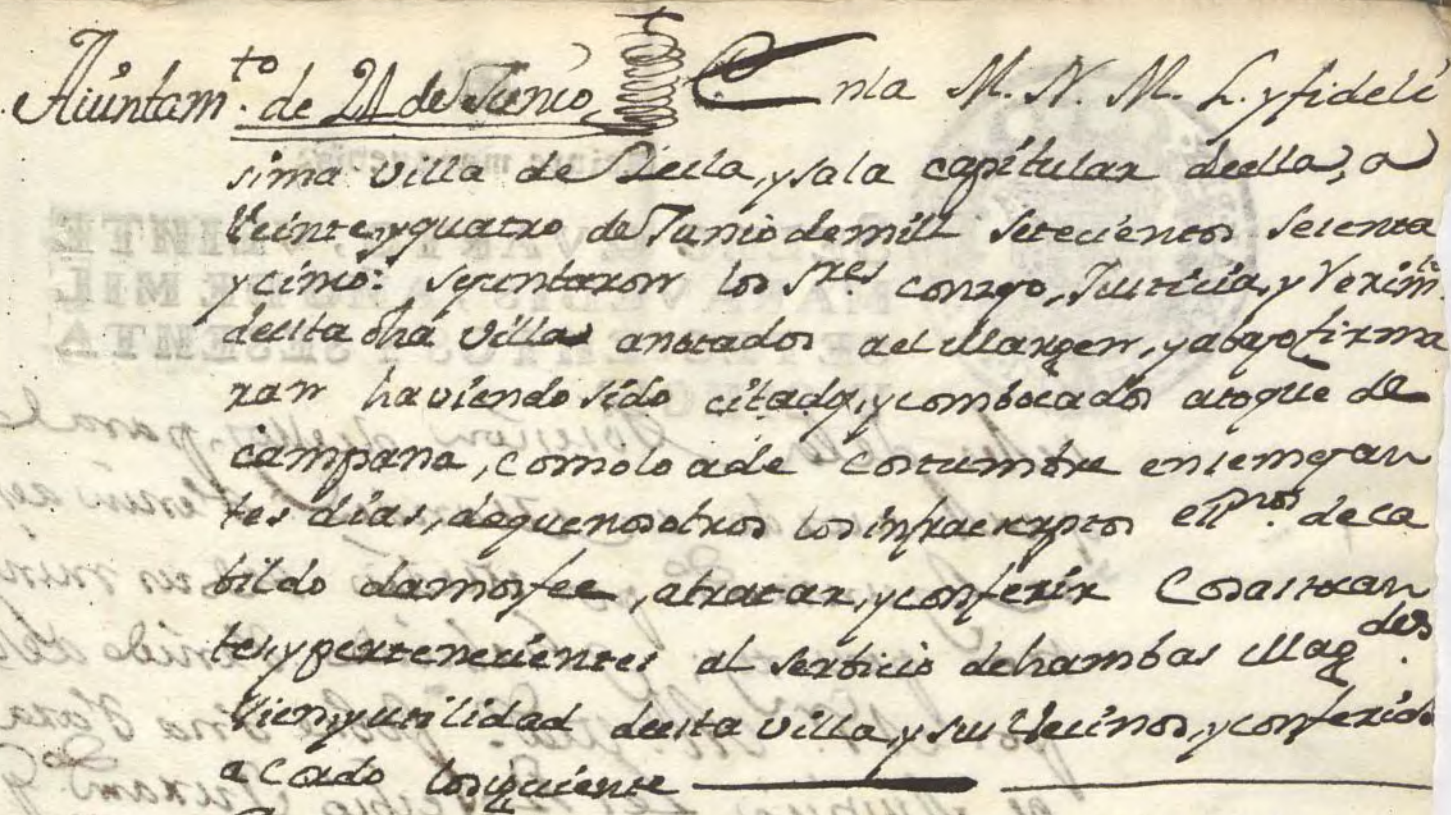 Aiuntam.to de 24 de Junio En la M. N. M. L. y fideli
sima Villa de Iecla, y sala capitular de ella, a
Veinte, y quatro de Junio de mill setecientos sesenta
y cinco: se juntaron los S.res conzejo, Justicia, y Reximto.
de esta dha Villa anotados ael Margen, y abajo firma
ran haviendo sido citados, y combocados a toque de
campana, como lo a de costumbre en semejan
tes dias, de que nosotros los infraescriptos ess.nos de ca
bildo damos fee, a tratar, y conferir Cosas tocan
tes, y pertenecientes al serbicio de hambas Mag.des
Vien, y utilidad de esta villa, y sus Vecinos, y conferido
acordo lo siguiente